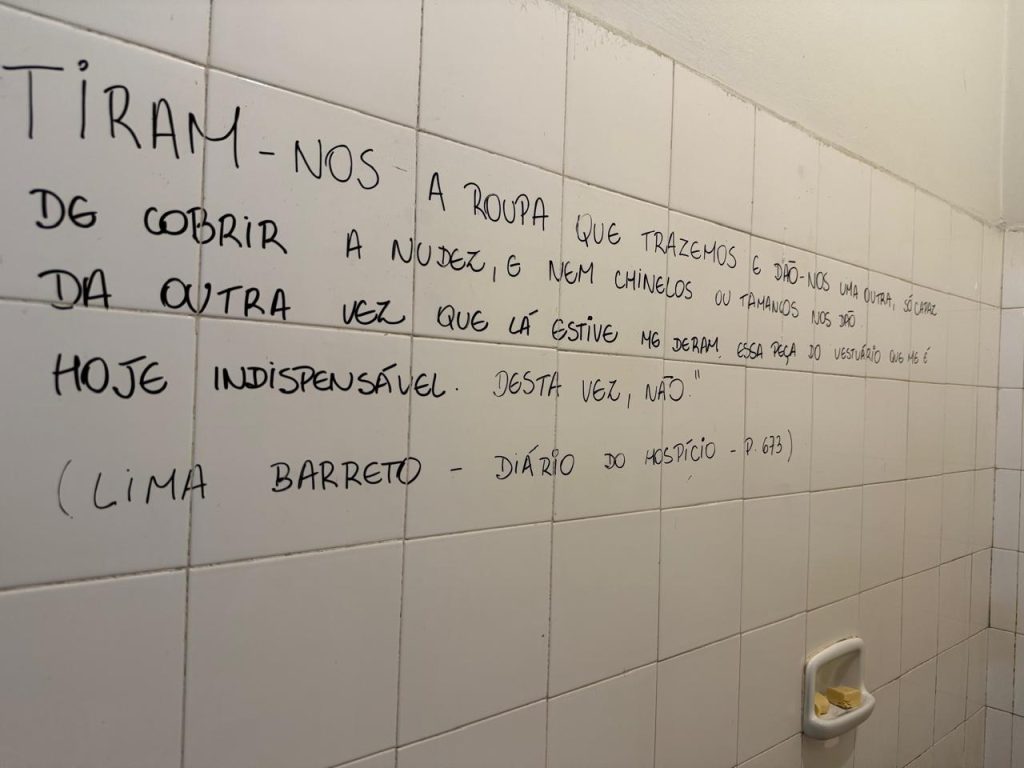 TIRAM-NOS A ROUPA QUE TRAZEMOS E DÃO-NOS UMA OUTRA, SÓ CAPAZ
DE COBRIR A NUDEZ, E NEM CHINELOS OU TAMANCOS NOS DÃO.
DA OUTRA VEZ QUE LÁ ESTIVE ME DERAM ESSA PEÇA DO VESTUÁRIO QUE ME É
HOJE INDISPENSÁVEL. DESTA VEZ, NÃO."
(LIMA BARRETO - DIÁRIO DO HOSPÍCIO - P. 673)